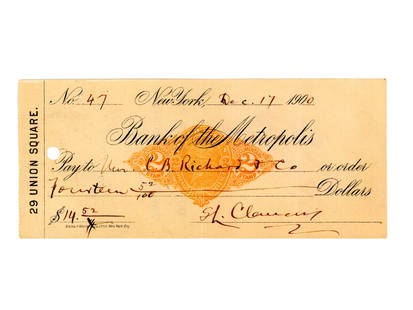 29 UNION SQUARE.
No. 47 New York, Dec. 17 1900
Bank of the Metropolis
Pay to C. B. Richard & Co or order
fourteen 52/100 Dollars
2 2
$14.52
S. L. Clemens